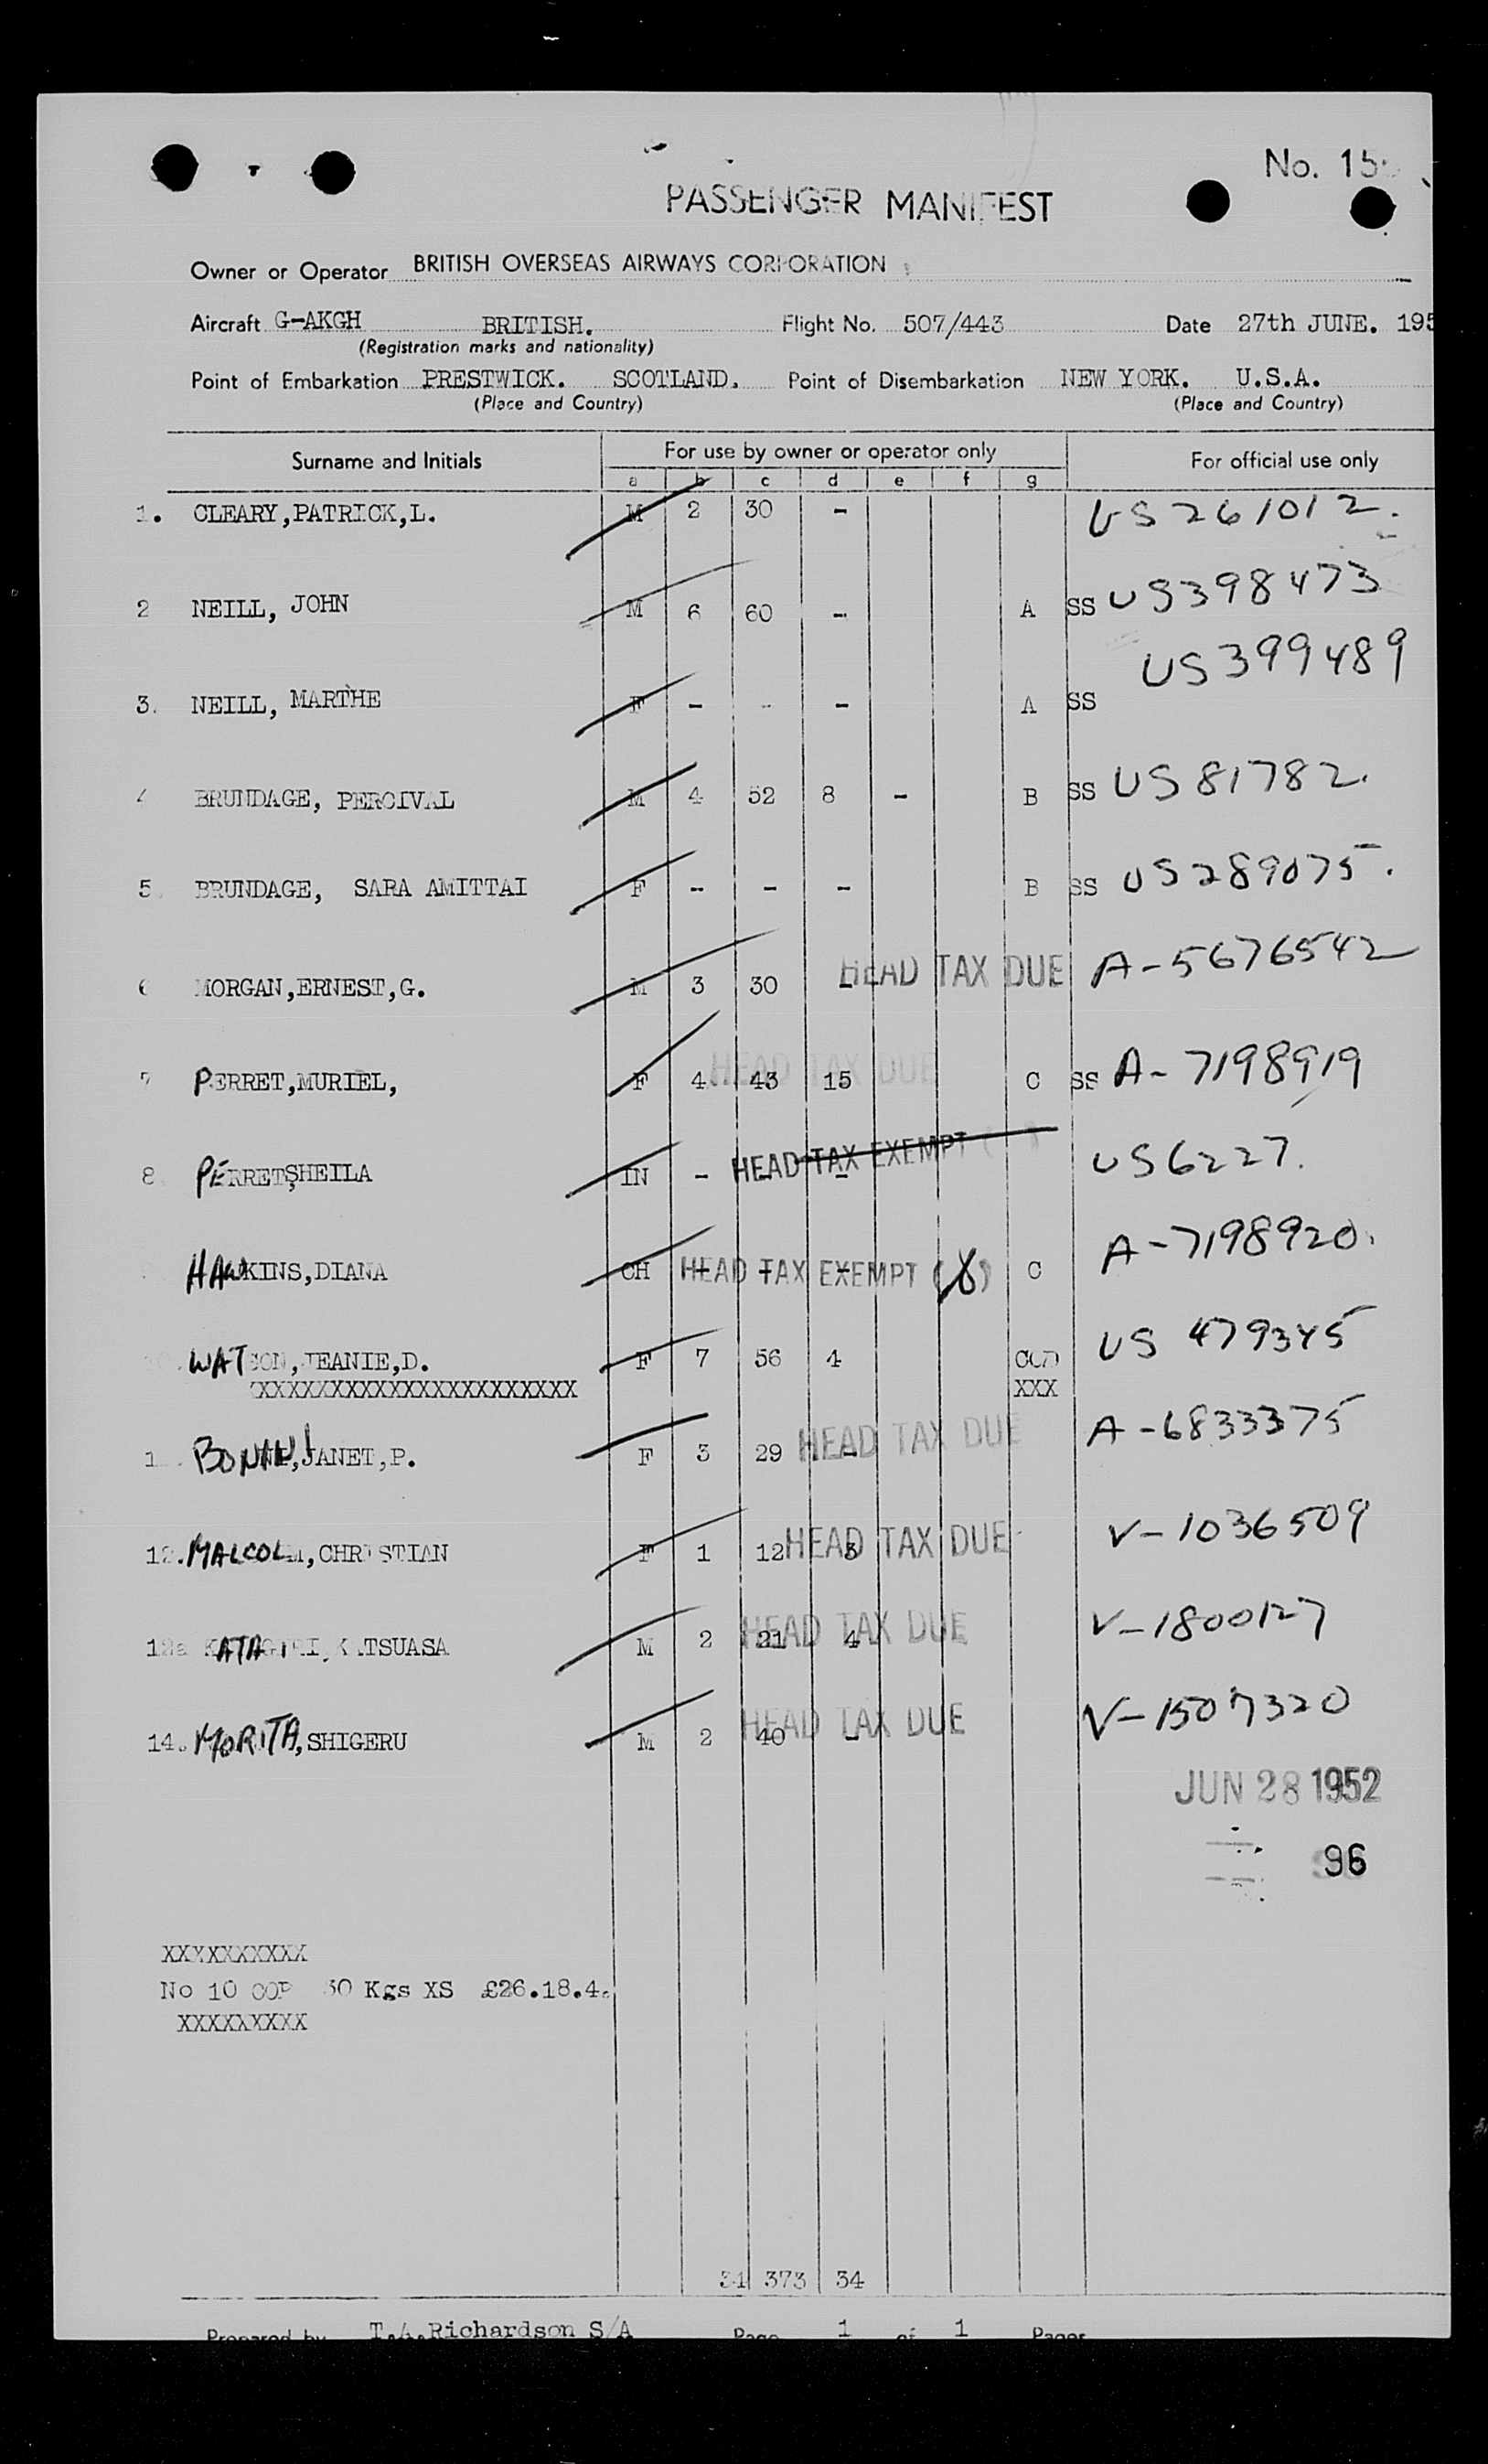 No. 15
PASSENGER MANIFEST
Owner or Operator BRITISH OVERSEAS AIRWAYS CORPORATION
Aircraft G-AKGH BRITISH. Flight No. 507/443 Date 27th JUNE. 195
(Registration marks and nationality)
Point of Embarkation PRESTWICK. SCOTLAND. Point of Disembarkation NEW YORK. U.S.A.
(Place and Country) (Place and Country)
Surname and Initials For use by owner or operator only For official use only
a b c d e f g
1. CLEARY,PATRICK,L. M 2 30 - US 261012.
2 NEILL, JOHN M 6 60 - A SS US398473
3. NEILL, MARTHE F - - - A SS US399489
4 BRUNDAGE, PERCIVAL M 4 52 8 - B SS US 81782.
5. BRUNDAGE, SARA AMITTAI F - - - B SS US289075.
6 MORGAN,ERNEST,G. M 3 30 - HEAD TAX DUE A-5676542
7 PERRET,MURIEL, F 4 43 15 HEAD TAX DUE C SS A-7198919
8 PERRET,SHEILA IN - - - HEAD TAX EXEMPT US6227.
HAWKINS,DIANA CH - - - HEAD TAX EXEMPT ( ) C A-7198920.
WATSON,JEANIE,D. F 7 56 4 US 479345
XXXXXXXXXXXXXXXXXXXXXXX XXX
1 JANET,P. F 3 29 - HEAD TAX DUE A-6833375
12. MALCOLM,CHRISTIAN F 1 12 3 HEAD TAX DUE V-1036509
12a KATAGIRI, KATSUASA M 2 21 4 HEAD TAX DUE V-1800127
14. MORITA,SHIGERU M 2 40 - HEAD TAX DUE V-1507320
JUN 28 1952
96
XXXXXXXXXX
No 10 30 Kgs XS £26.18.4.
XXXXXXXXX
34 373 34
Prepared by T.A.Richardson S/A Page 1 of 1 Pages